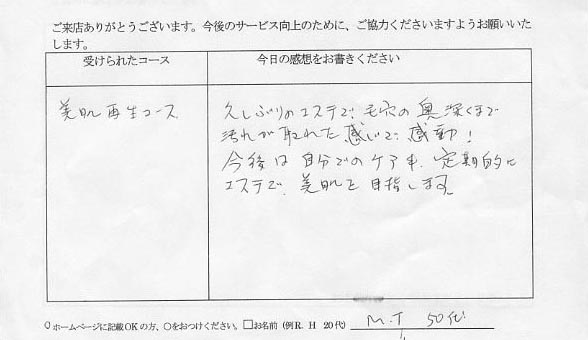 ご来店ありがとうございます。今後のサービス向上のために、ご協力くださいますようお願いいた
します。
受けられたコース
今日の感想をお書きください
美肌再生コース
久しぶりのエステで、毛穴の奥深くまで
汚れが取れた感じで感動!
今後は自分でのケアも、定期的に
エステで、美肌を目指します。
○ホームページに記載OKの方、○をおつけください。□お名前(例R.H 20代) M.T 50代